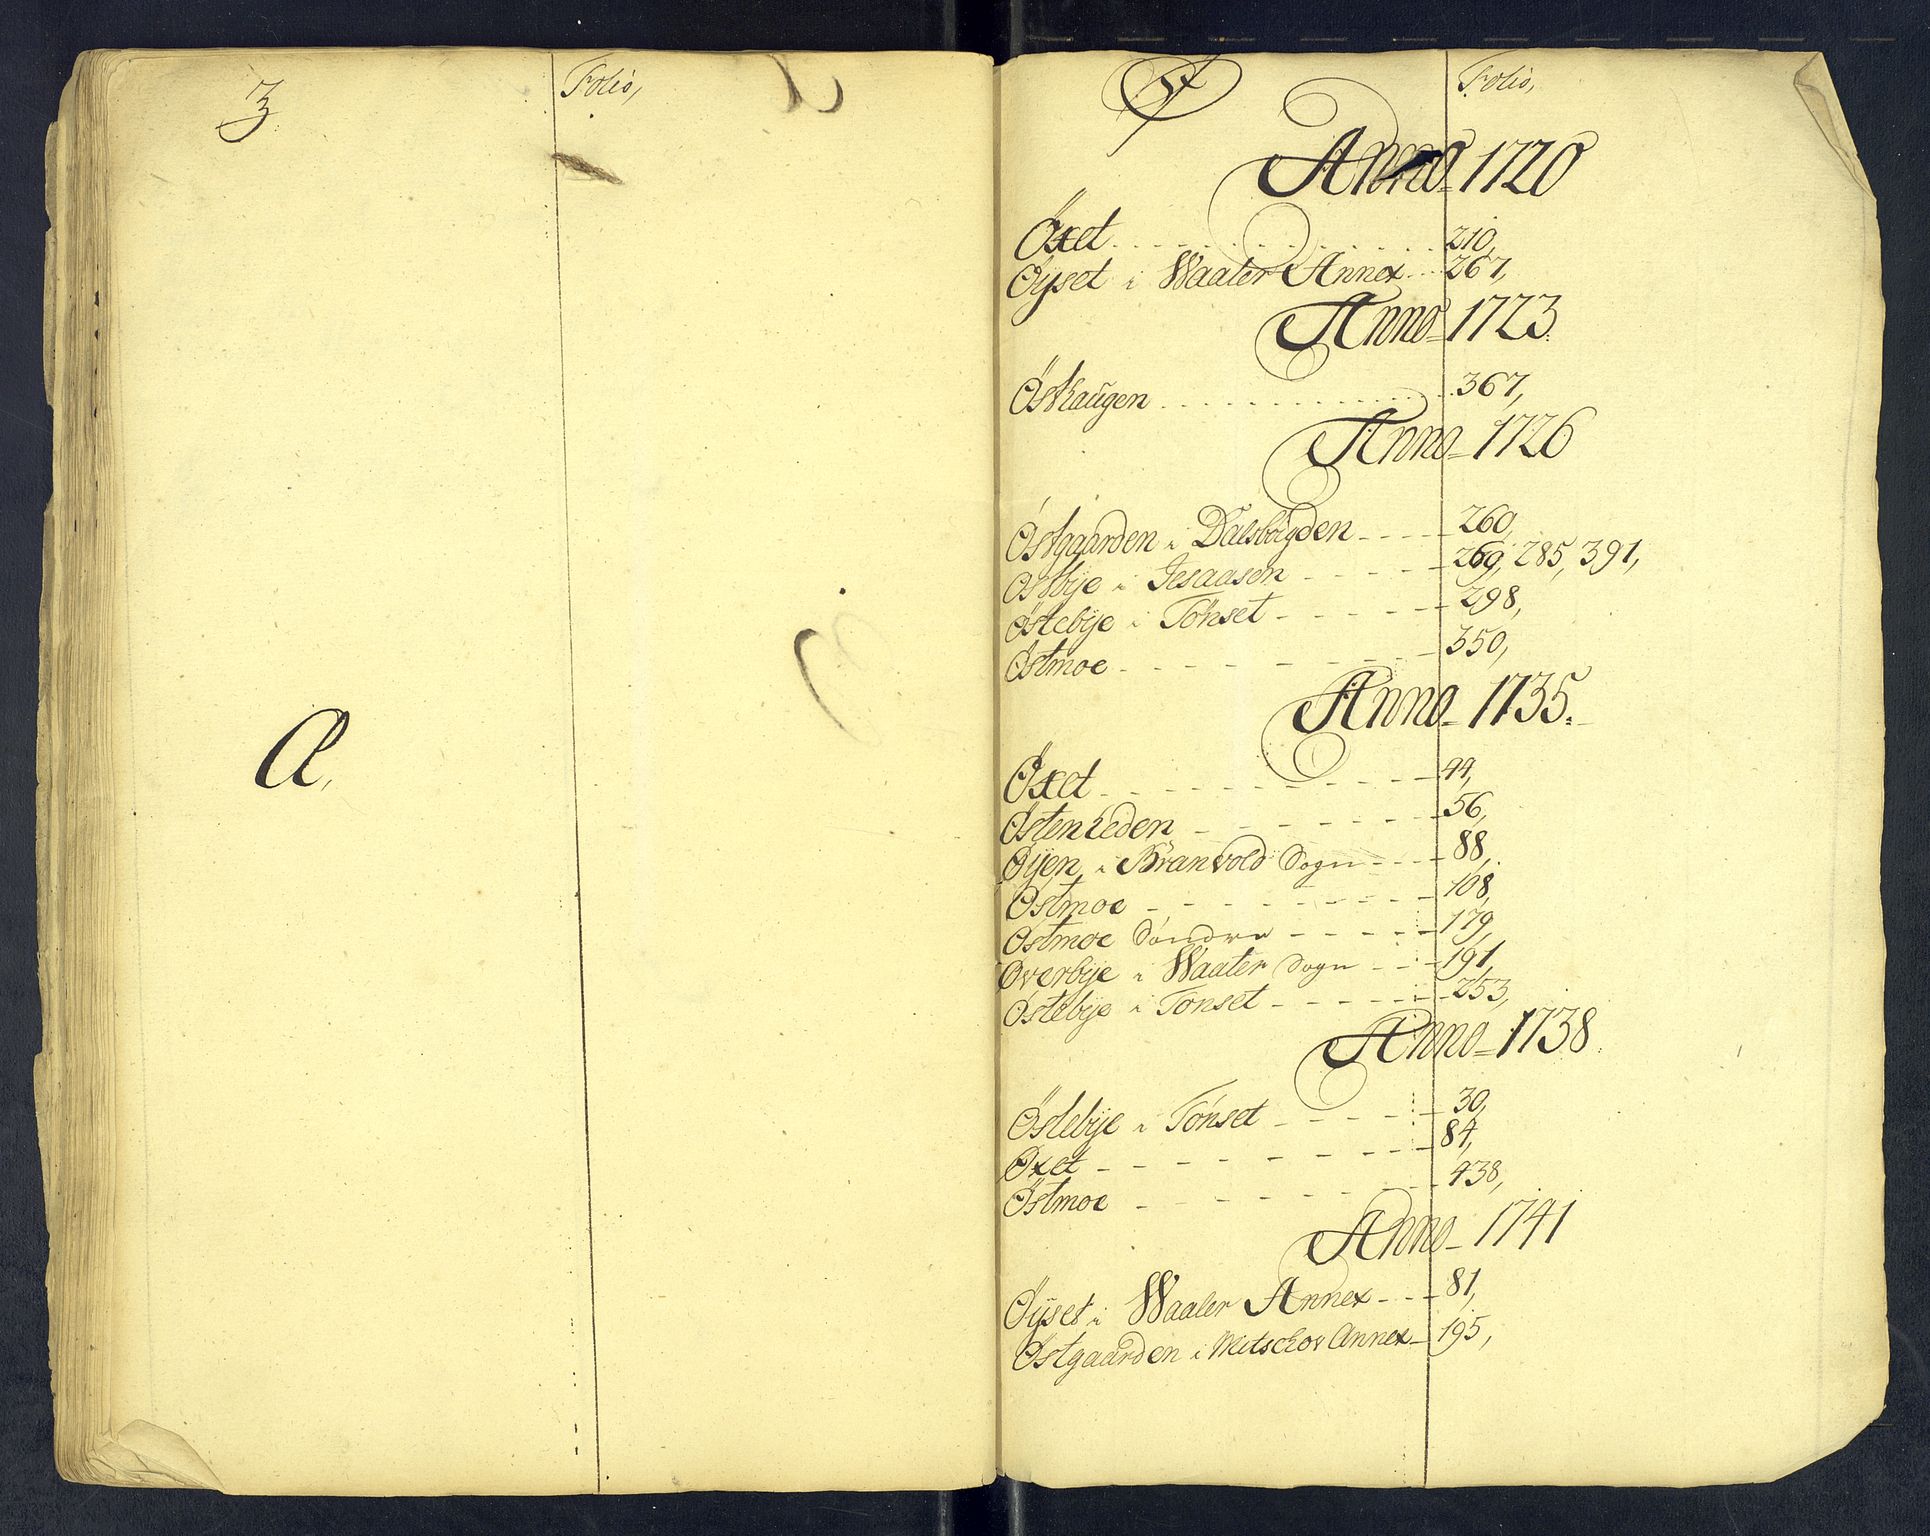 Z
Folio,
Æ,
Ø
Folio,
Anno 1720
Øxet 210,
Øyset i Waaler Annex 267,
Anno 1723
Østhaugen 367,
Anno 1726
Østgaarden i Dalsbøygden 260,
Østbÿe i 269, 285, 391,
Østebÿe i Tønset 298,
Østmoe 350,
Anno 1735.
Øxet 44,
Østenheden 56,
Øÿen i Branvold Sogn 88,
Østmoe 108,
Østmoe Søndre 179,
Øverbÿe i Waaler Sogn 191,
Østebÿe i Tønset 253,
Anno 1738
Østebÿe i Tønset 30,
Øxet 84,
Østmoe 438,
Anno 1741
Øÿset i Waaler Annex 81,
Østgaarden i Metschov Annex 195,